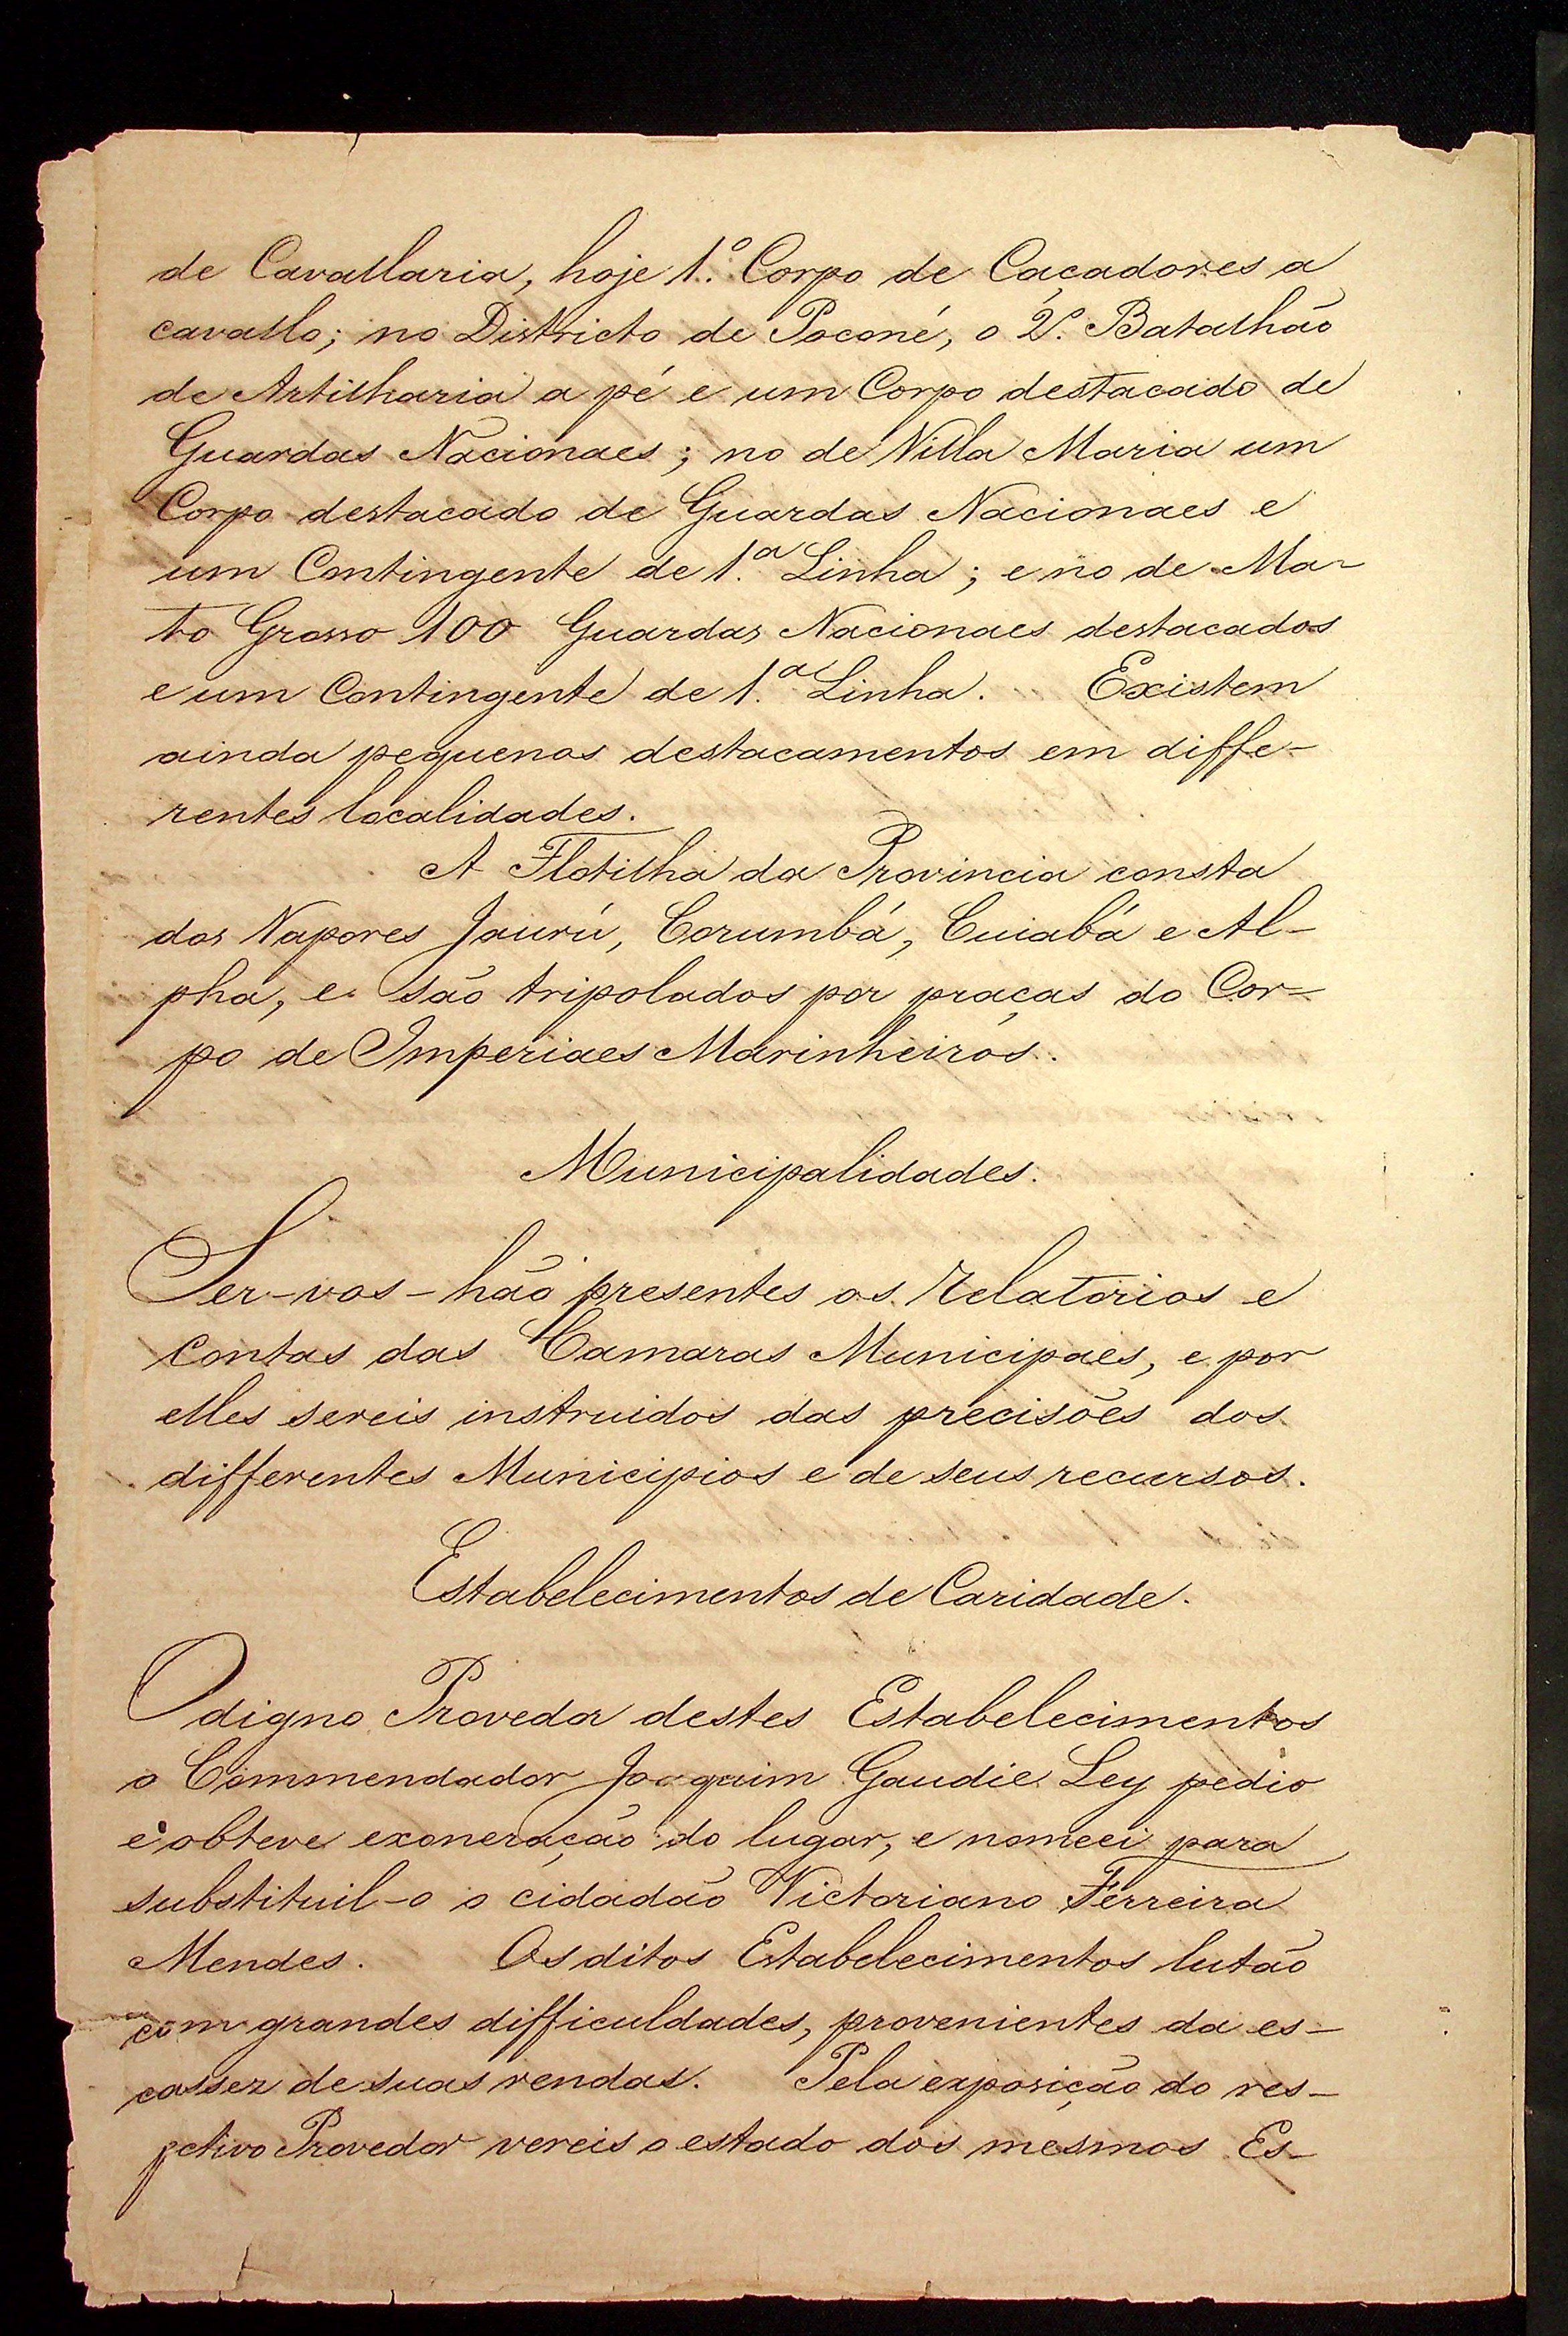 de Cavallaria, hoje 1.º Corpo de Caçadores a
cavallo; no Districto de Poconé, o 2º. Batalhão
de Artilharia a pé e um Corpo destacado de
Guardas Nacionaes; no de Villa Maria um
Corpo destacado de Guardas Nacionaes e
um Contingente de 1.ª Linha; e no de Ma-
to Grosso 100 Guardas Nacionaes destacados
e um Contingente de 1.ª Linha. Existem
ainda pequenos destacamentos em diffe-
rentes localidades.
A Flotilha da Provincia consta
dos Vapores Jaurú, Corumbá, Cuiabá e Al-
pha, e são tripolados por praças do Cor-
po de Imperiaes Marinheiros.
Municipalidades.
Ser-vos-hão presentes os relatorios e
contas das Camaras Municipaes, e por
elles sereis instruidos das precisões dos
differentes Municipios e de seus recursos.
Estabelecimentos de Caridade.
O digno Provedor destes Estabelecimentos
o Commendador Joaquim Gaudie Ley pedio
e obteve exoneração do lugar, e nomeei para
substituil-o o cidadão Victoriano Ferreira
Mendes. Os ditos Estabelecimentos lutão
com grandes difficuldades, provenientes da es-
cassez de suas rendas. Pela exposição do res-
pctivo Provedor vereis o estado dos mesmos Es-